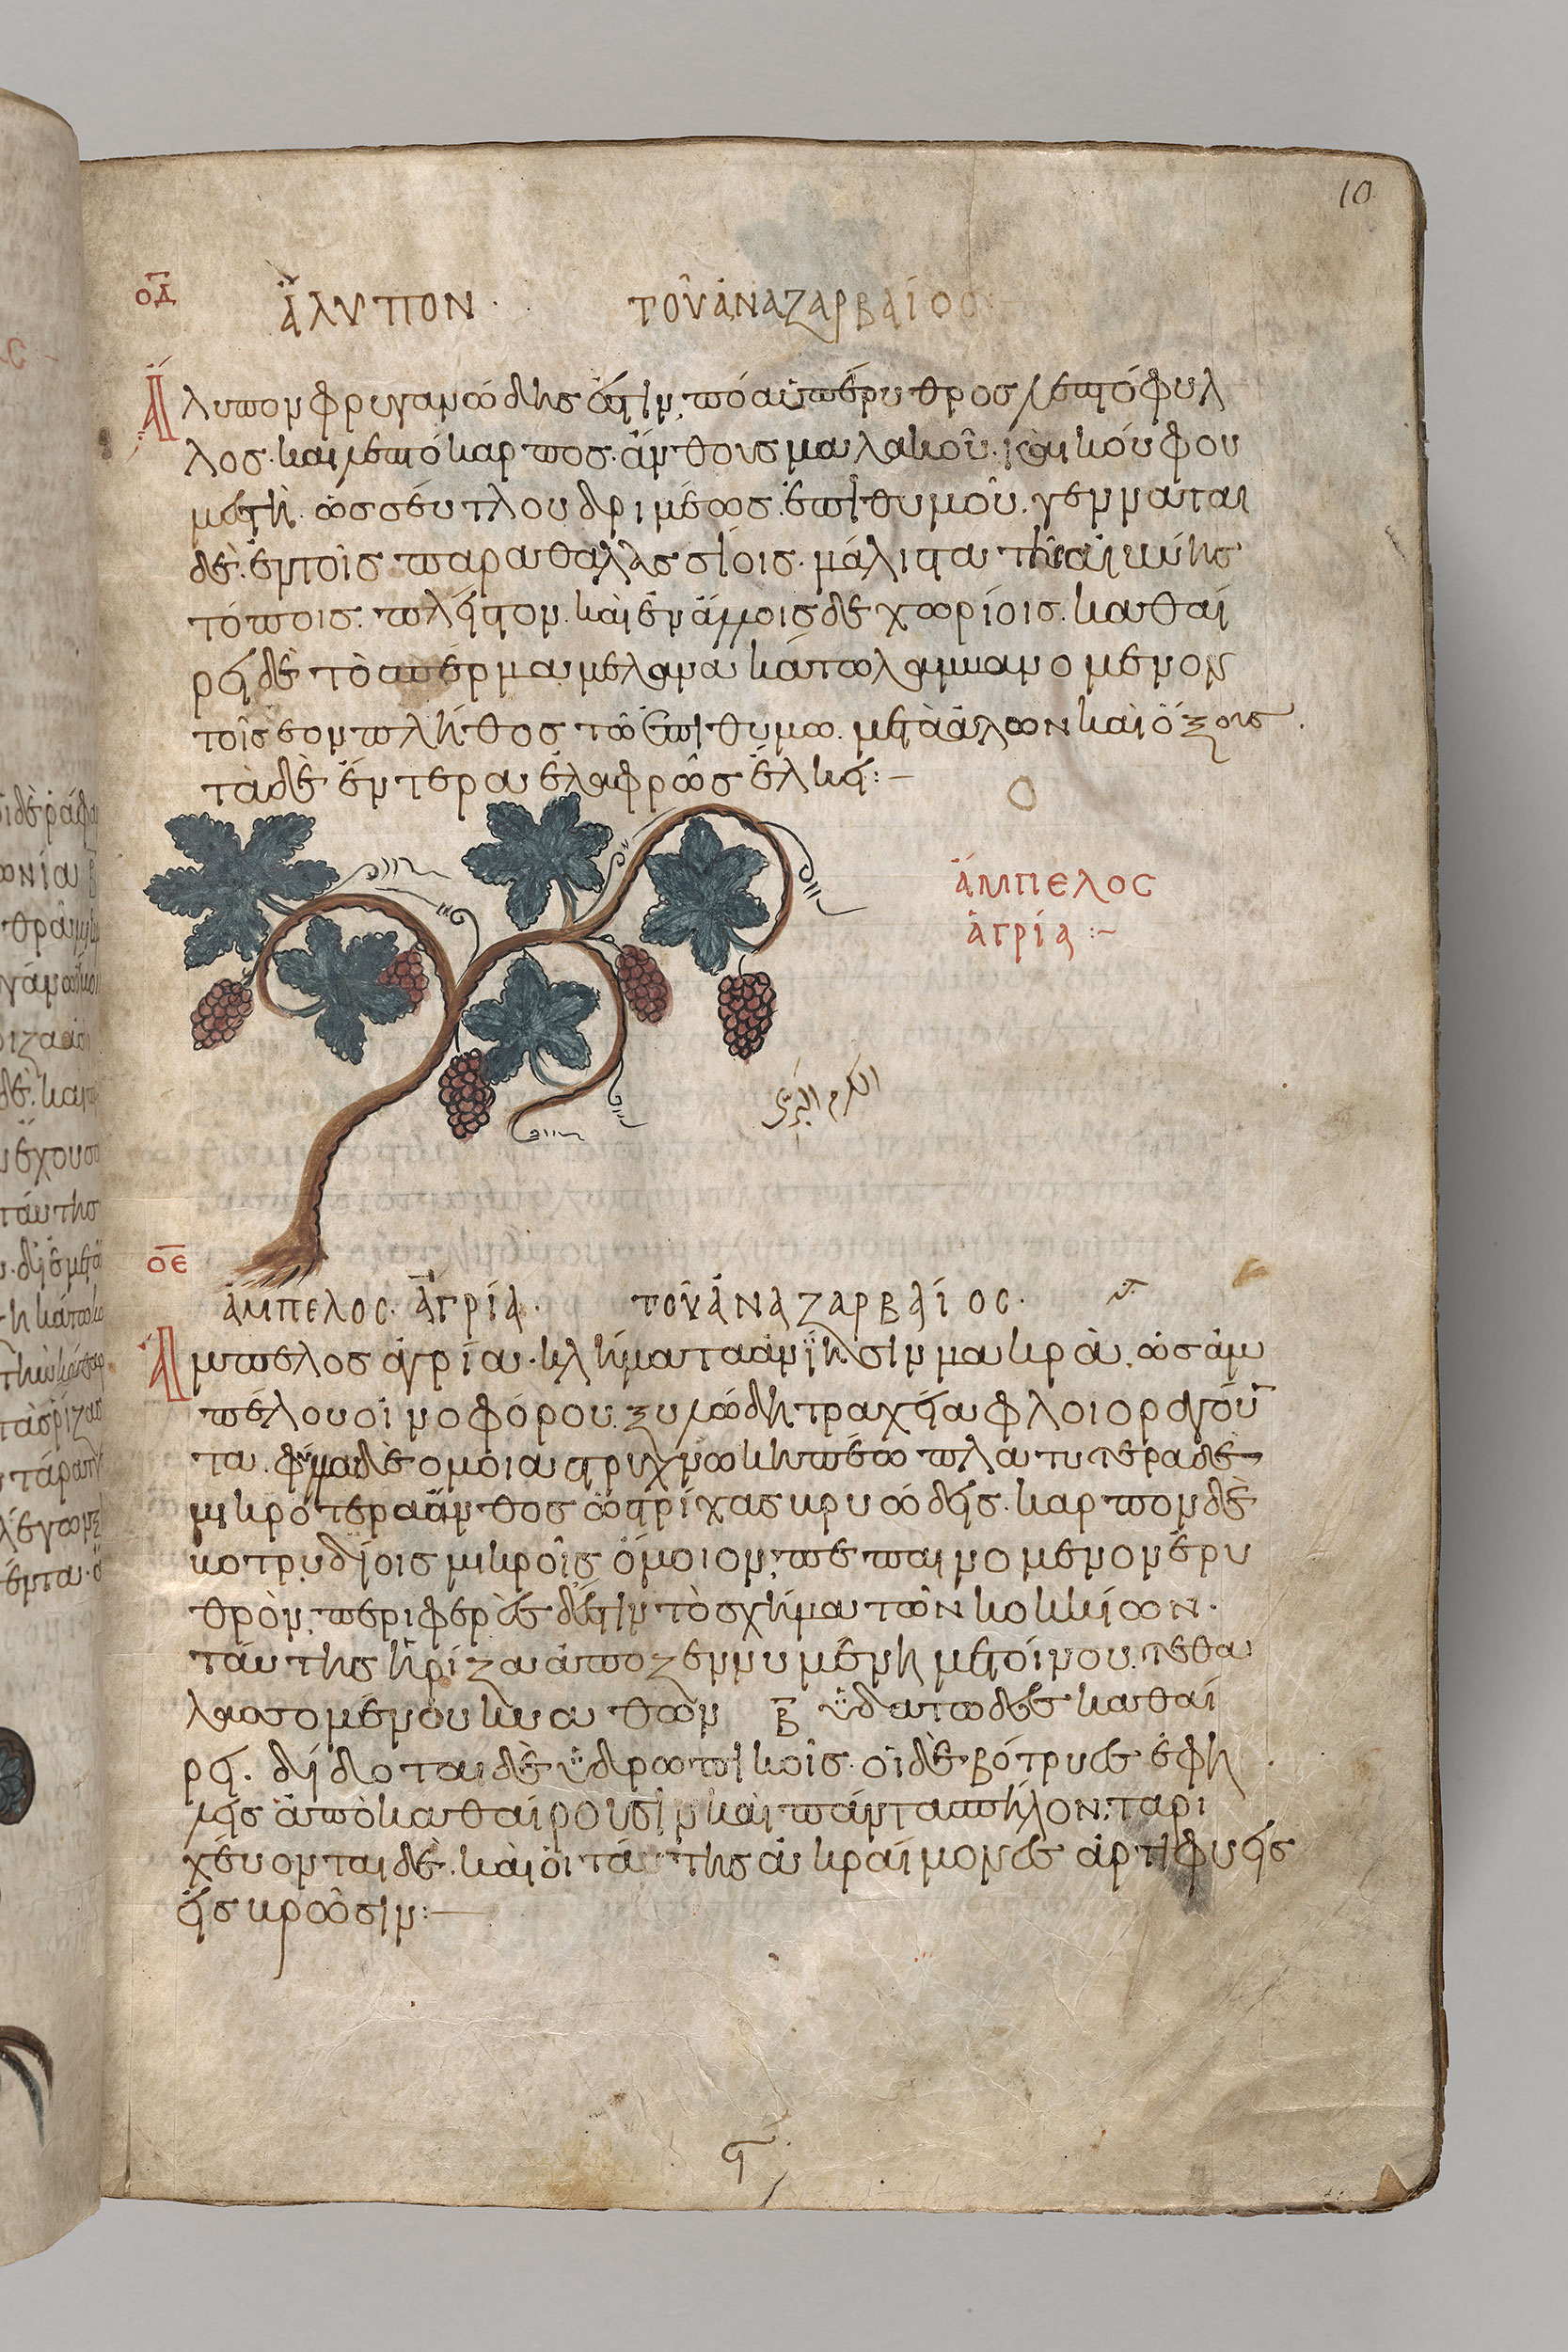 10
οδ
ἄλυπον· τοῦ ἀναζαρβαίος
Ἄλυπον φρυγανώδης ἐστὶν, πόα ὑπέρυθρος λεπτόφυλ
λος· και λεπτόκαρπος· ἄνθους μαλακοῦ· καὶ κούφου
μεστὴ· ὡς σέυτλου δριμέως· ἐπιθυμοῦ· γεννᾶται
δὲ· ἐν τοῖς παραθαλασσίοις· μάλιστα
τόποις· πλεῖστον· καὶ ἐν ἄλλοις δὲ χωρίοις· καθαί
ρει δὲ τὸ σπέρμα μέλανα κάτω λαμμανομενον
τοῖς σον πλῆθος τῶ ἐπιθυμω· μετὰ ἁλῶν καὶ ὄξους·
τὰ δὲ ἔντερα ἐλαφρῶς ἕλκει:—
ἄμπελος
ἀγρία :~
الكرم البري
οε
ἄμπελος· ἀγρία· τοῦ ἀναζαρβαίος·
Ἄμπελος ἀγρία· κλήματα ἀνίησιν μακρὰ, ὡς ἀμ
πέλου οἰνοφόρου· ξυλώδη τραχέα φλοιοραγοῦ
τα· φύλλα δὲ ομόια στρύχνω κηπέω πλατυτερα δε
μικρότερα ἄνθος ὡς τρίχας κρυώδεις· καρπον δὲ
κοτρυδίοις μικροῖς ὅμοιον, πεπαινομενον ἐρυ
θρὸν, περιφερὲς δέ ἐστιν τὸ σχῆμα τῶν κοκκίων·
τάυτης ἡ ρίζα ἀποζεννυμένη μετ οίνου· τεθα
λασσομένου κυαθῶν β ὑδατώδες καθαί
ρει· δίδοται δὲ ὑδρωπικοῖς· οἱ δὲ βότρυες ἐφή
λεις ἀποκαθαίρουσιν καὶ πάντα σπήλον· ταρι
χέυονται δὲ· καὶ ὁι τάυτης ἀκραίμονες ἀρτιφυεῖς
εἰς κρσῶσιν:—